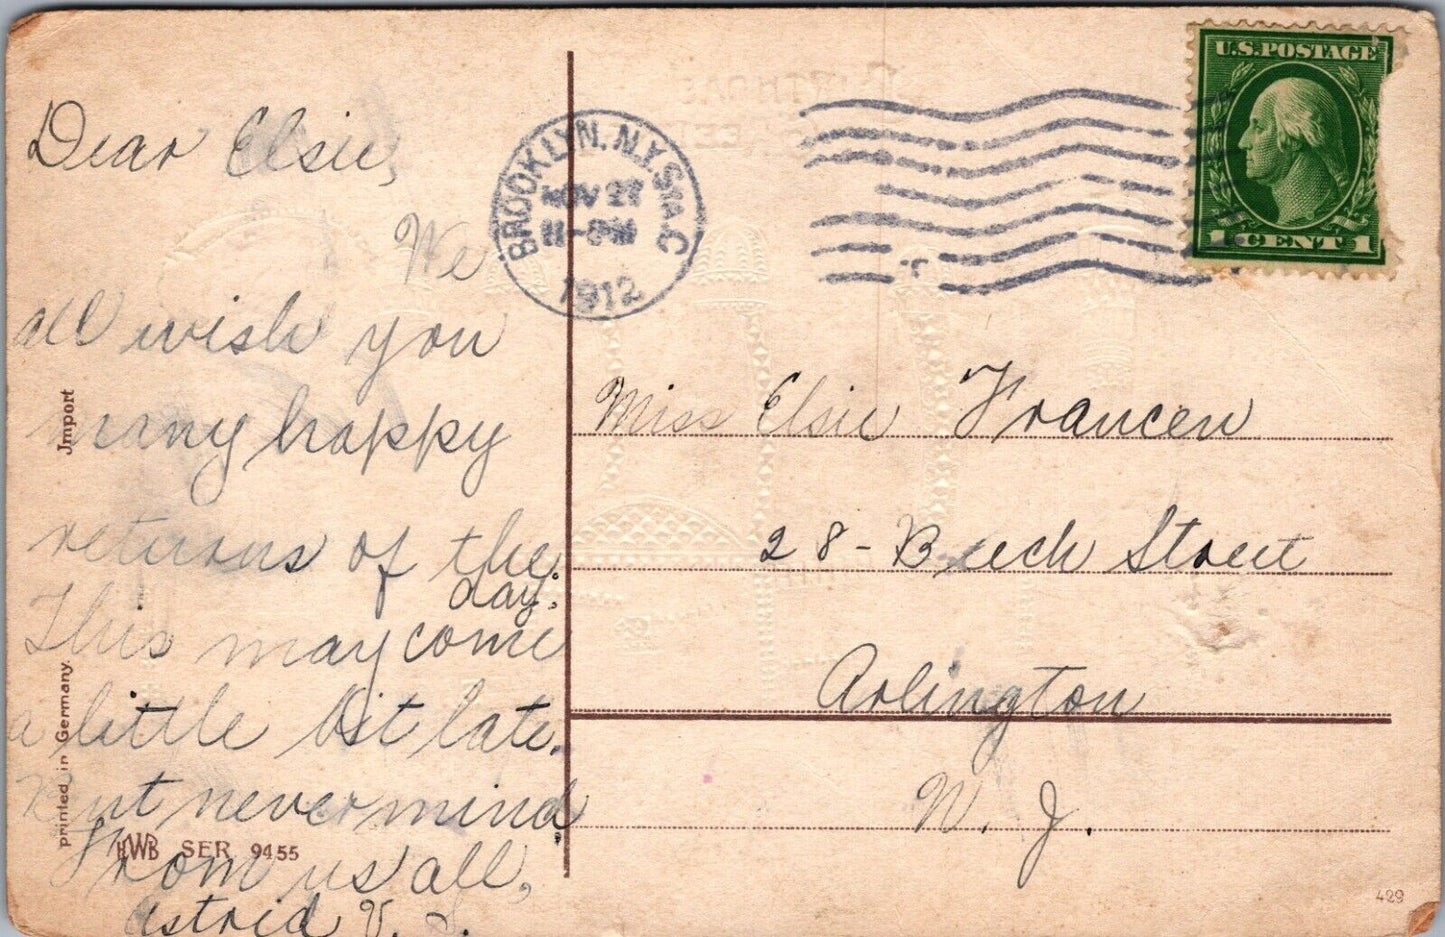 Dear Elsie,
We
all wish you
many happy
returns of the
day.
This may come
a little bit late.
But never mind
From us all,
Astrid V. S.
Import
printed in Germany.
HWB SER 9455
BROOKLYN, N.Y. STA. C
NOV 27
11-PM
1912
U.S. POSTAGE
1 CENT 1
Miss Elsie Francen
28 - Beech Street
Arlington
N. J.
429